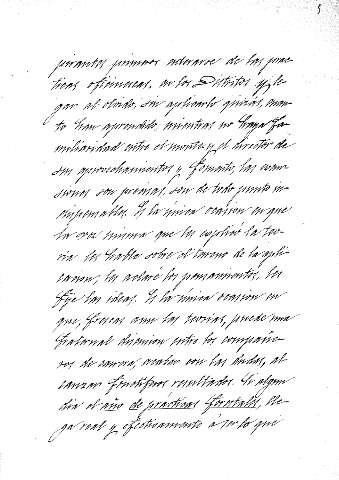 5
pirantes primero enterarse de las prac
ticas oficinescas, en los Distritos y lle
gar al olvido, sin aplicarlo quizás, cuan
to han aprendido, mientras no haya fa
miliaridad entre el monte y el director de
sus aprovechamientos y fomento, las excur
siones son precisas, son de todo punto in
dispensables. Es la única ocasion en que
la voz misma que les explicó la teo
ria les hable sobre el terreno de la apli
cacion, les aclare los pensamientos, les
fije las ideas. Es la única ocasion en
que, frescas aun las teorias, puede una
fraternal discusion entre los compañe
ros de carrera, acabar con las dudas, al
canzar fructíferos resultados. Si algun
dia el año de practicas forestales, lle
ga real y efectivamente á ser lo que